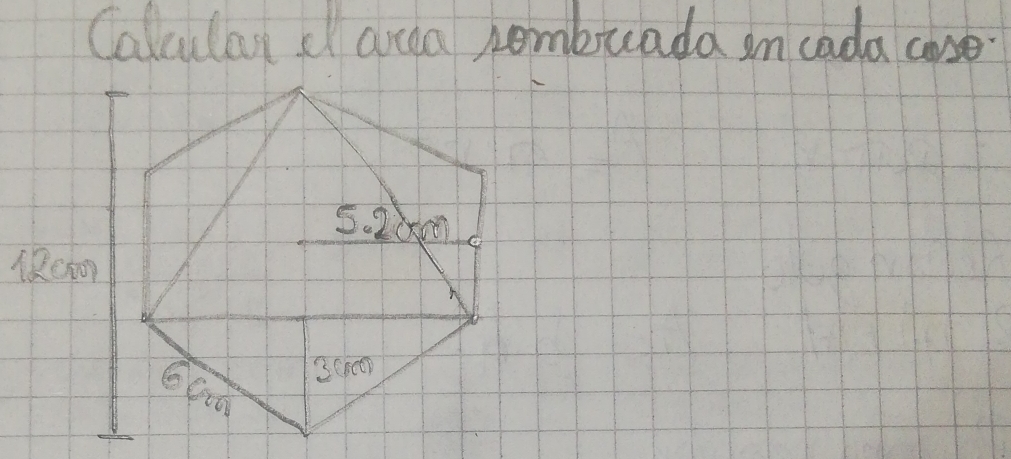 Calcular el area sombreada en cada caso.
5.2cm
12cm
3cm
6cm